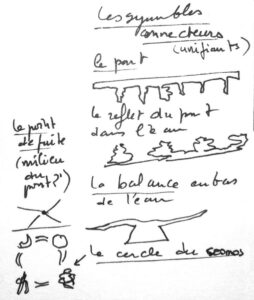 Les symboles
connecteurs
(unifiants)
le pont
le reflet du pont
dans l'eau
le point
de fuite
(milieu
du pont)
la balance en bas
de l'eau
le cercle du cosmos